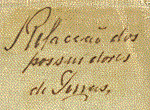 Relaccaõ dos
possuidores
de Terras.